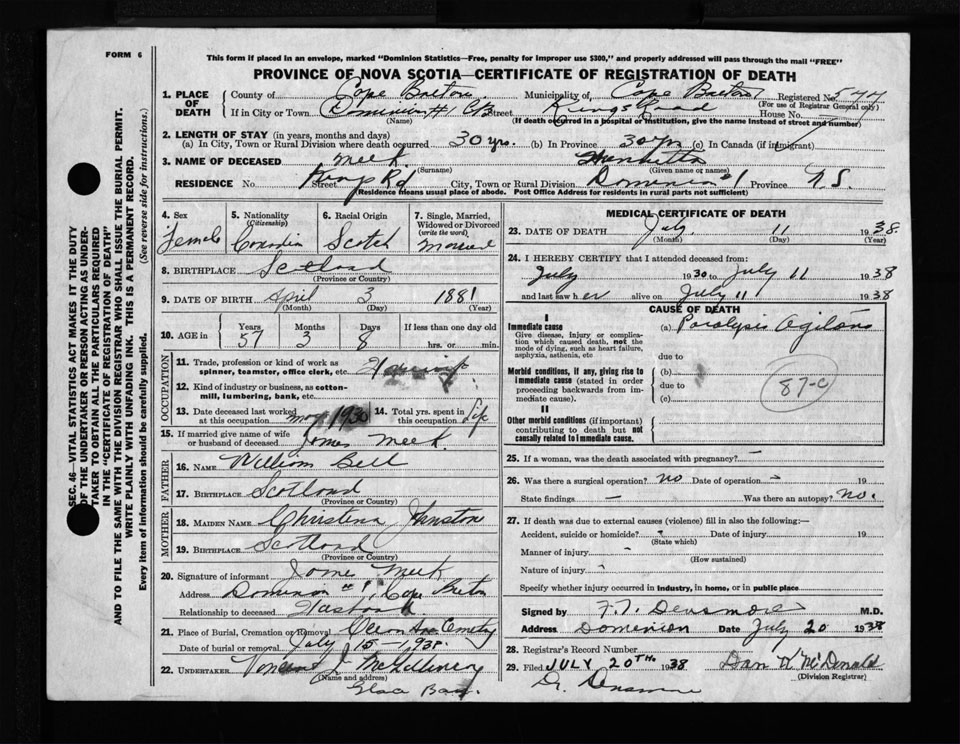 FORM 6
This form if placed in an envelope, marked "Dominion Statistics—Free, penalty for improper use $300," and properly addressed will pass through the mail "FREE"
PROVINCE OF NOVA SCOTIA—CERTIFICATE OF REGISTRATION OF DEATH
SEC. 46—VITAL STATISTICS ACT MAKES IT THE DUTY
OF THE UNDERTAKER OR PERSON ACTING AS UNDER-
TAKER TO OBTAIN ALL THE PARTICULARS REQUIRED
IN THE "CERTIFICATE OF REGISTRATION OF DEATH"
AND TO FILE THE SAME WITH THE DIVISION REGISTRAR WHO SHALL ISSUE THE BURIAL PERMIT.
WRITE PLAINLY WITH UNFADING INK. THIS IS A PERMANENT RECORD.
Every item of information should be carefully supplied. (See reverse side for instructions.)
1. PLACE OF DEATH County of Cape Breton Municipality of Cape Breton Registered No. 544
(For use of Registrar General only)
If in City or Town Dominion #1 CB Street Kings Road House No.
(Name) (If death occurred in a hospital or institution, give the name instead of street and number)
2. LENGTH OF STAY (in years, months and days)
(a) In City, Town or Rural Division where death occurred 30 yrs. (b) In Province 30 yrs (c) In Canada (if immigrant)
3. NAME OF DECEASED Meek Henrietta
(Surname) (Given name or names)
RESIDENCE No. Street Kings Rd City, Town or Rural Division Dominion #1 Province N.S.
(Residence means usual place of abode. Post Office Address for residents in rural parts not sufficient)
4. Sex Female
5. Nationality (Citizenship) Canadian
6. Racial Origin Scotch
7. Single, Married, Widowed or Divorced (write the word) Married
8. BIRTHPLACE Scotland
(Province or Country)
9. DATE OF BIRTH April 3 1881
(Month) (Day) (Year)
10. AGE in Years 57 Months 3 Days 8 If less than one day old hrs. or min.
OCCUPATION
11. Trade, profession or kind of work as spinner, teamster, office clerk, etc.
12. Kind of industry or business, as cotton-mill, lumbering, bank, etc.
13. Date deceased last worked at this occupation May 1930 14. Total yrs. spent in this occupation Life
15. If married give name of wife or husband of deceased James Meek
FATHER
16. NAME William Bell
17. BIRTHPLACE Scotland
(Province or Country)
MOTHER
18. MAIDEN NAME Christena Jhnston
19. BIRTHPLACE Scotland
(Province or Country)
20. Signature of informant James Meek
Address Dominion #1, Cape Breton
Relationship to deceased Husband
21. Place of Burial, Cremation or Removal Cemetery
Date of burial or removal July 15 - 1938
22. UNDERTAKER Vincent J McGillivery
(Name and address)
Glace Bay.
MEDICAL CERTIFICATE OF DEATH
23. DATE OF DEATH July 11 1938
(Month) (Day) (Year)
24. I HEREBY CERTIFY that I attended deceased from:
July 1930 to July 11 1938
and last saw her alive on July 11 1938
CAUSE OF DEATH
I
Immediate cause
Give disease, injury or complication which caused death, not the mode of dying, such as heart failure, asphyxia, asthenia, etc
(a) Paralysis Agitans
due to
Morbid conditions, if any, giving rise to immediate cause (stated in order proceeding backwards from immediate cause).
(b)
due to
(c)
87-c
II
Other morbid conditions (if important) contributing to death but not causally related to immediate cause.
25. If a woman, was the death associated with pregnancy? -
26. Was there a surgical operation? no Date of operation 19
State findings - Was there an autopsy? no.
27. If death was due to external causes (violence) fill in also the following:—
Accident, suicide or homicide? Date of injury 19
(State which)
Manner of injury -
(How sustained)
Nature of injury
Specify whether injury occurred in industry, in home, or in public place
Signed by F.T. Densmore M.D.
Address Dominion Date July 20 1938
28. Registrar's Record Number
29. Filed JULY 20TH. 1938 Dan K McDonald
(Division Registrar)
Dr. Densmore